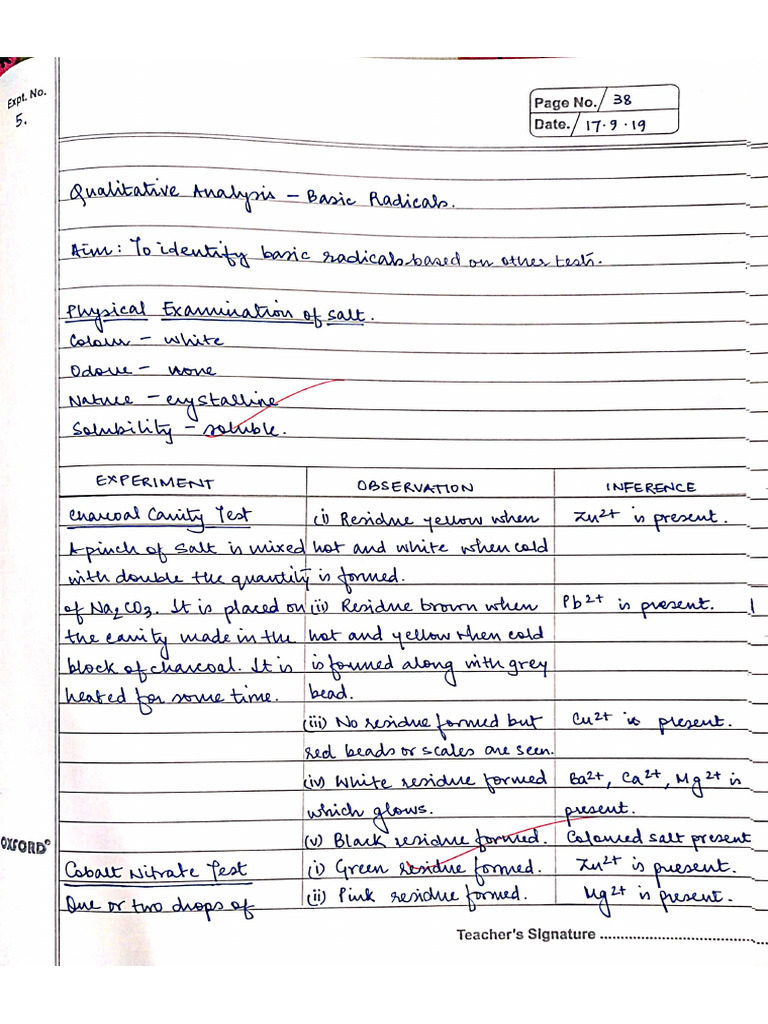 Expt. No.
5.
Page No. 38
Date. 17.9.19
Qualitative Analysis – Basic Radicals.
Aim: To identify basic radicals based on other tests.
Physical Examination of salt.
Colour – white
Odour – none
Nature – crystalline
Solubility – soluble.
EXPERIMENT OBSERVATION INFERENCE
Charcoal Cavity Test (i) Residue yellow when Zn2+ is present.
A pinch of salt is mixed hot and white when cold
with double the quantity is formed.
of Na2CO3. It is placed on (ii) Residue brown when Pb2+ is present.
the cavity made in the hot and yellow when cold
block of charcoal. It is is formed along with grey
heated for some time. bead.
(iii) No residue formed but Cu2+ is present.
red beads or scales are seen.
(iv) White residue formed Ba2+, Ca2+, Mg2+ is
which glows. present.
(v) Black residue formed. Coloured salt present
OXFORD®
Cobalt Nitrate Test (i) Green residue formed. Zn2+ is present.
One or two drops of (ii) Pink residue formed. Mg2+ is present.
Teacher's Signature ........................................